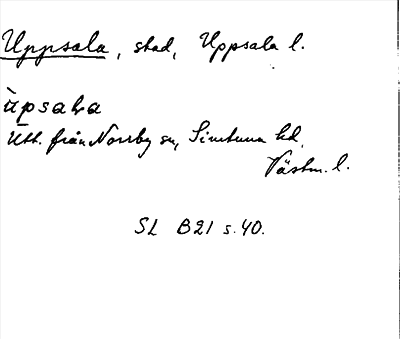 Uppsala, stad, Uppsala l.
ùpsaɭa
Utt. från Norrby sn, Simtuna hd,
Västm. l.
SL B21 s. 40.